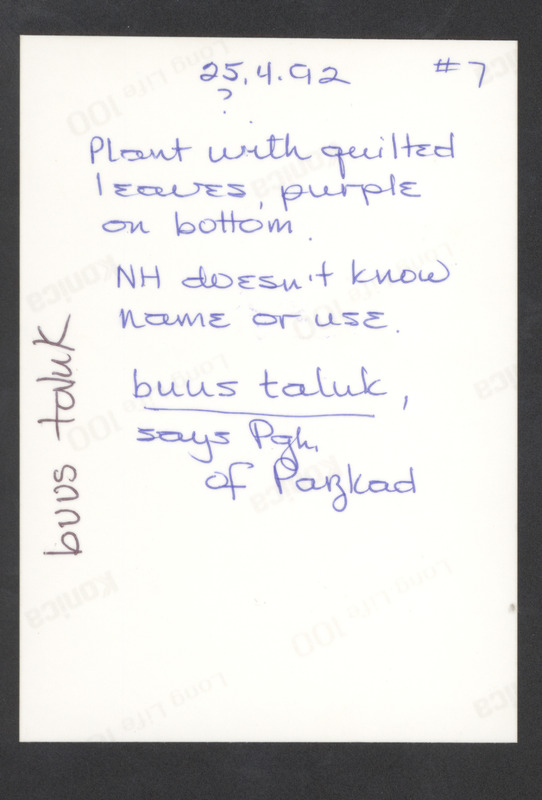 25.4.92 #7
?
Plant with quilted
leaves, purple
on bottom.
NH doesn't know
name or use.
buus taluk,
says Pgh.
of Paŋkad
buus taluk
Konica
Long Life 100